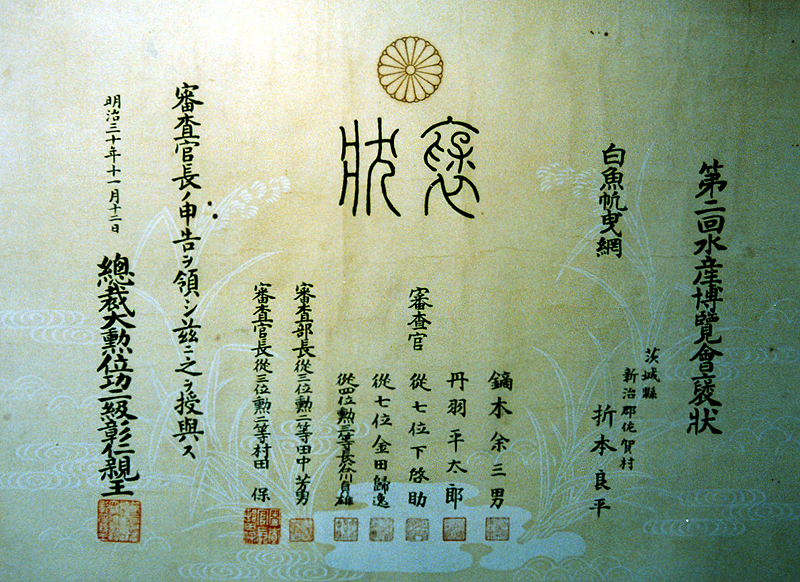 第二回水産博覽會褒状
茨城縣
新治郡佐賀村
折本良平
白魚帆曳網
褒状
審査官
鏑木余三男
丹羽平太郎
從七位下啓助
從七位金田歸逸
從四位勲三等長谷川貞雄
審査部長從三位勲二等田中芳男
審査官長從三位勲二等村田保
審査官長ノ申告ヲ領シ茲ニ之ヲ授與ス
明治三十年十一月十二日
總裁大勲位功二級彰仁親王